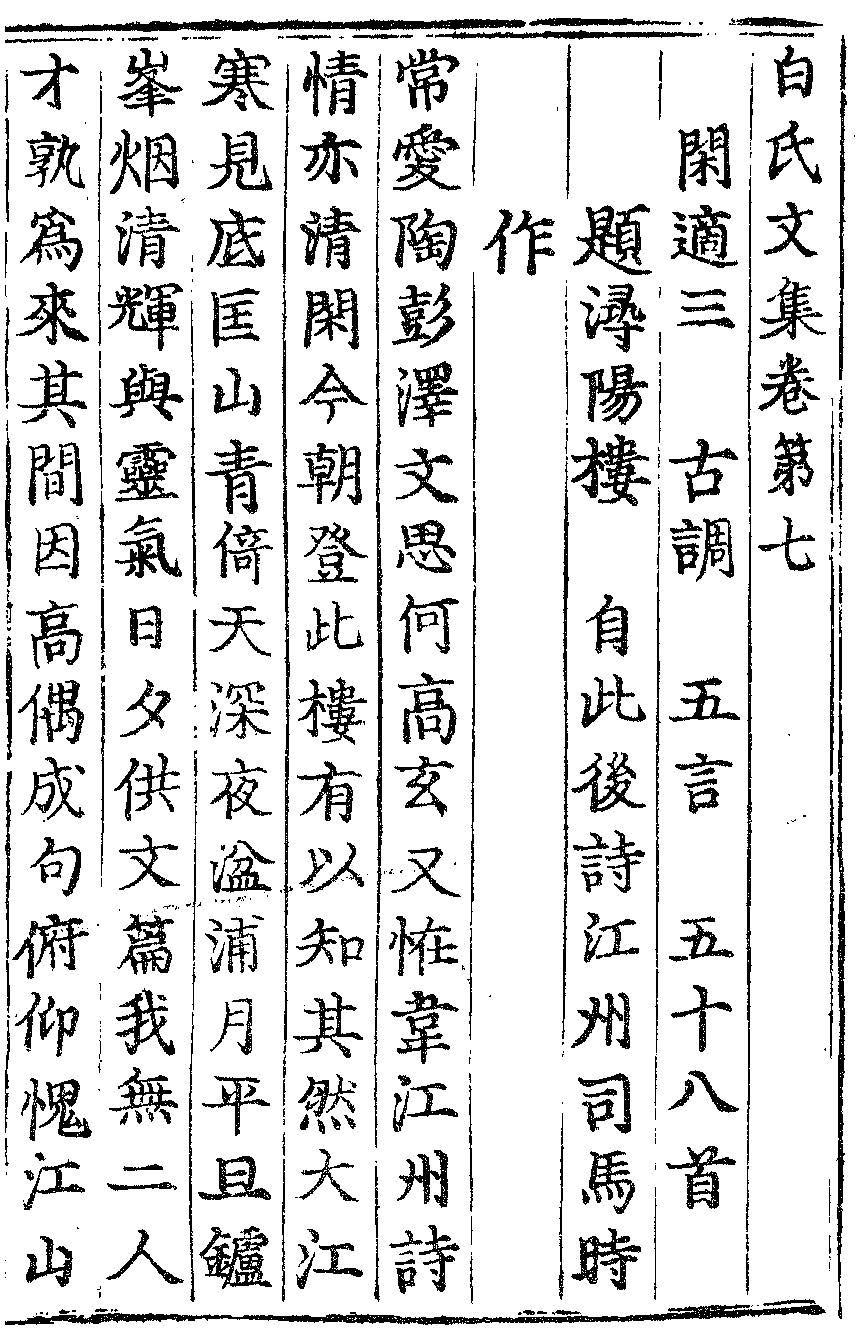 白氏文集卷第七
閑適三　古調　五言　五十八首
題潯陽樓　自此後詩江州司馬時
作
常愛陶彭澤文思何高玄又恠韋江州詩
情亦清閑今朝登此樓有以知其然大江
寒見底匡山青倚天深夜湓浦月平旦鑪
峯烟清輝與靈氣日夕供文篇我無二人
才孰爲來其間因高偶成句俯仰愧江山